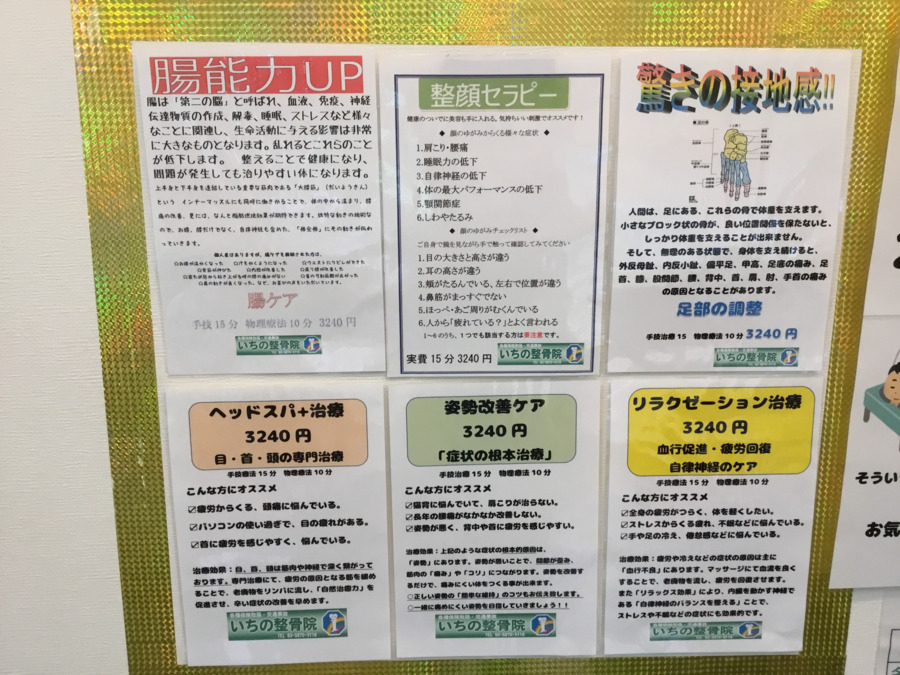 腸能力UP
腸は「第二の脳」と呼ばれ、血液、免疫、神経
伝達物質の作成、解毒、睡眠、ストレスなど様々
なことに関連し、生命活動に与える影響は非常
に大きなものとなります。乱れるとこれらのこと
が低下します。 整えることで健康になり、
問題が発生しても治りやすい体になります。
上半身と下半身を連結している重要な筋肉である「大腰筋」(だいようきん)
という インナーマッスルにも同時に働きかることで、体の中から温まり、腰
腸ケア
手技15分 物理療法10分 3240円
いちの整骨院
整顔セラピー
健康のついでに美容も手に入れる、気持ちいい刺激でオススメです!
◆ 顔のゆがみからくる様々な症状 ◆
1.肩こり・腰痛
2.睡眠力の低下
3.自律神経の低下
4.体の最大パフォーマンスの低下
5.顎関節症
6.しわやたるみ
◆ 顔のゆがみチェックリスト ◆
ご自身で鏡を見ながら手で触って確認してみてください
1.目の大きさと高さが違う
2.耳の高さが違う
3.頬がたるんでいる、左右で位置が違う
4.鼻筋がまっすぐでない
5.ほっぺ・あご周りがむくんでいる
6.人から「疲れている?」とよく言われる
1~6のうち、1つでも該当する方は要注意です。
実費 15分 3240円
いちの整骨院
驚きの接地感!!
人間は、足にある、これらの骨で体重を支えます。
小さなブロック状の骨が、良い位置関係を保たないと、
しっかり体重を支えることが出来ません。
そして、無理のある状態で、身体を支え続けると、
外反母趾、内反小趾、偏平足、甲高、足底の痛み、足
首、膝、股関節、腰、背中、首、肩、肘、手首の痛み
の原因となることがあります。
足部の調整
手技療法 15 物理療法 10分 3240円
いちの整骨院
ヘッドスパ+治療
3240 円
目・首・頭の専門治療
手技療法 15分 物理療法 10分
こんな方にオススメ
☑疲労からくる、頭痛に悩んでいる。
☑パソコンの使い過ぎで、目の疲れがある。
☑首に疲労を感じやすく、悩んでいる。
治療効果:目、首、頭は筋肉や神経で深く繋がって
おります。専門治療にて、疲労の原因となる筋を緩め
ることで、老廃物をリンパに流し、「自然治癒力」を
促進させ、辛い症状の改善を早めます。
いちの整骨院
姿勢改善ケア
3240 円
「症状の根本治療」
手技治療 15分 物理療法 10分
こんな方にオススメ
☑猫背に悩んでいて、肩こりが治らない。
☑長年の腰痛がなかなか改善しない。
☑姿勢が悪く、背中や首に疲労を感じやすい。
治療効果:上記のような症状の根本的原因は、
「姿勢」にあります。姿勢が悪いことで、関節が歪み、
筋肉の「痛み」や「コリ」につながります。姿勢を改善す
るだけで、痛みにくい体をつくる事が出来ます。
○正しい姿勢の「簡単な維持」のコツもお伝え致します。
○一緒に痛めにくい姿勢を目指していきましょう!!
いちの整骨院
リラクゼーション治療
3240 円
血行促進・疲労回復
自律神経のケア
手技療法 15分 物理療法 10分
こんな方にオススメ
☑全身の疲労がつらく、体を軽くしたい。
☑ストレスからくる疲れ、不眠などに悩んでいる。
☑手や足の冷え、倦怠感などに悩んでいる。
治療効果:疲労や冷えなどの症状の原因は主に
「血行不良」にあります。マッサージにて血流を良く
することで、老廃物を流し、疲労を回復させます。
また「リラックス効果」により、内臓を動かす神経で
ある「自律神経のバランスを整える」ことで、
ストレスや不眠などの症状にも効果的です。
いちの整骨院
そうい
お気